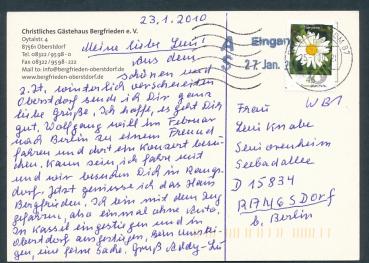 23.1.2010
Christliches Gästehaus Bergfrieden e. V.
Oytalstr. 4
87561 Oberstdorf
Fon 08322/9598-0
Fax 08322/9598-222
Mail to: info@bergfrieden-oberstdorf.de
www.bergfrieden-oberstdorf.de
Meine liebe Leni!
Aus dem
schönen und
z.Zt. winterlich verschneiten
Oberstdorf sende ich Dir ganz
liebe Grüße. Ich hoffe, es geht Dir
gut. Wolfgang will im Februar
nach Berlin zu einem Freund
fahren und dort ein Konzert besu-
chen. Kann sein, ich fahre mit
und wir besuchen Dich in Rangs-
dorf. Jetzt geniesse ich das Haus
Bergfrieden. Ich bin mit dem Zug
gefahren, also einmal ohne Auto.
In Kassel eingestiegen und in
Oberstdorf ausgestiegen, kein Umstei-
gen eine feine Sache. Gruß
A
S
Eingang
27. Jan. 2010
45
Frau WB1
Leni Knabe
Seniorenheim
Seebadallee
D 15834
RANGSDORF
b. Berlin